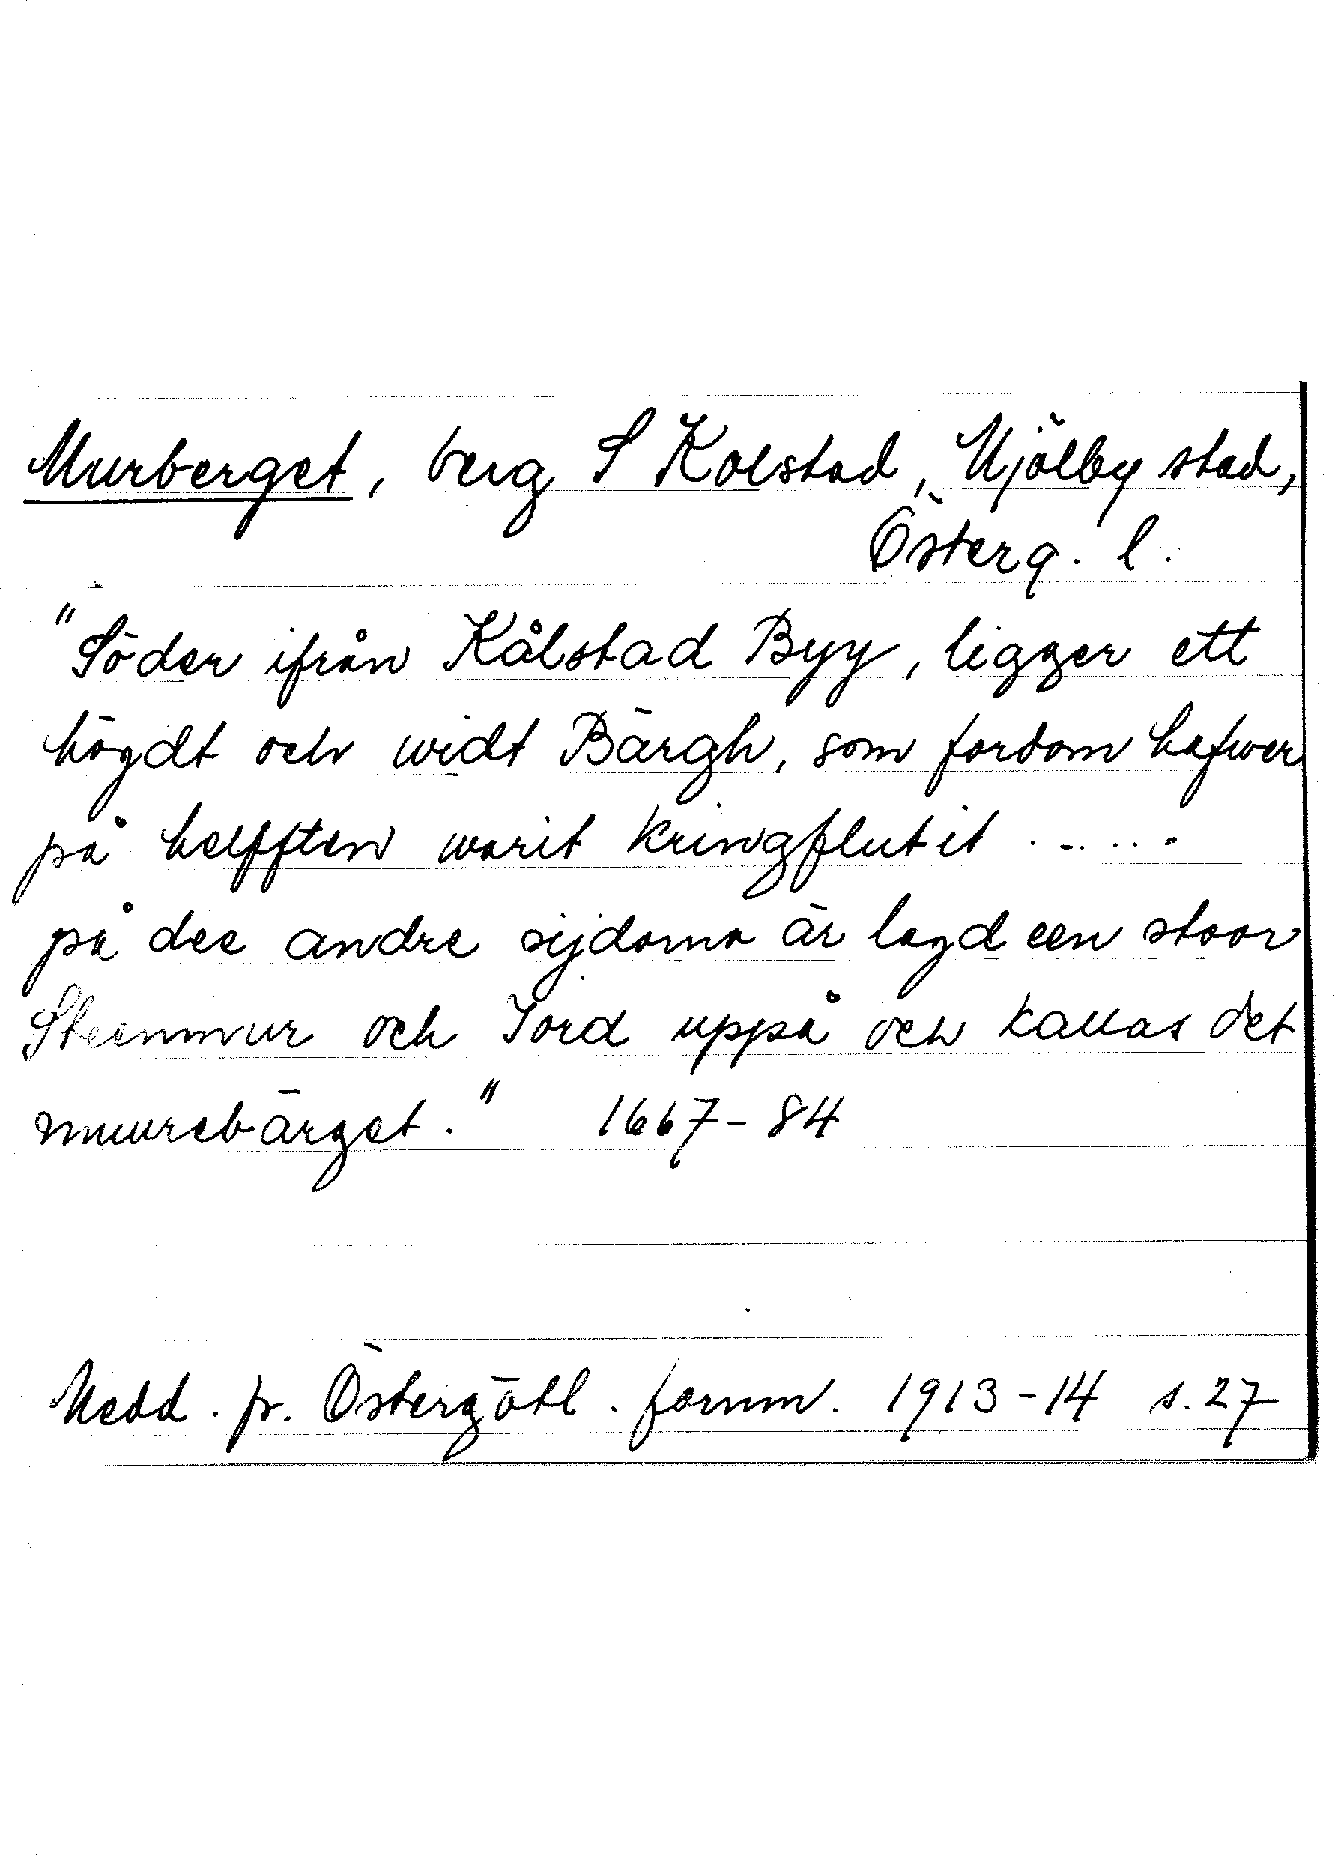 Murberget, berg S Kolstad, Mjölby stad,
Österg. l.
"Söder ifrån Kålstad Byy, ligger ett
högdt och widt Bärgh, som fordom hafwer
på helfften warit kringflutit .....
på dee andre sijdorna är lagd een stoor
Steenmur och Jord uppå och kallas det
muurebärget." 1667-84
Medd. fr. Östergötl. fornm. 1913-14 s. 27